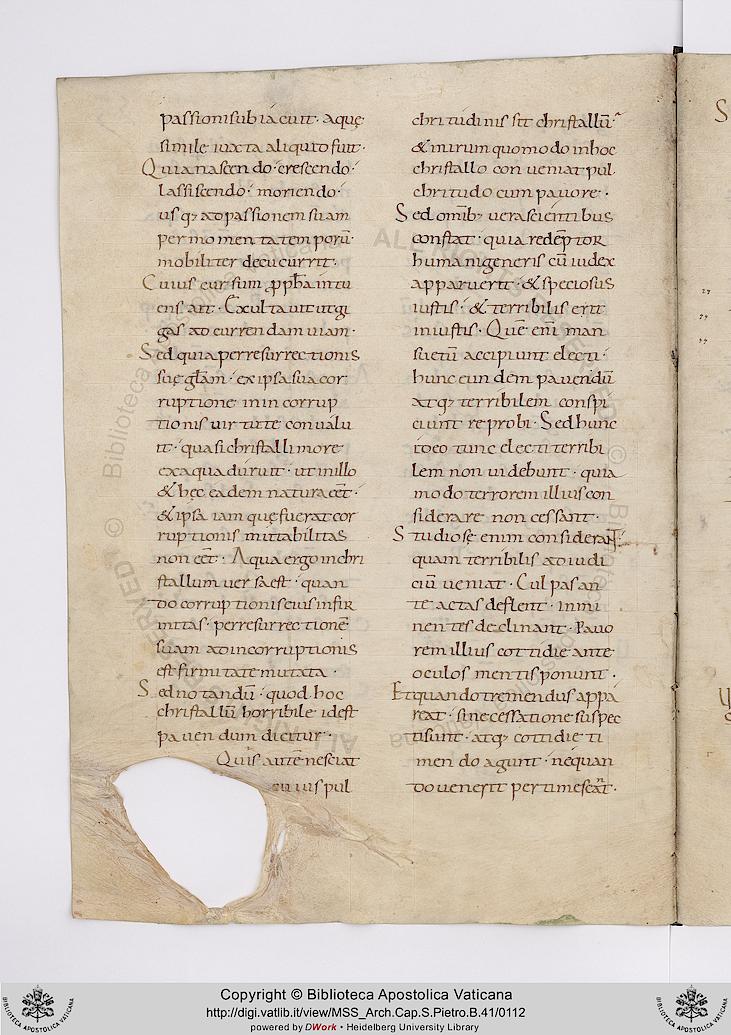 passioni subiacuit · aquę
simile iuxta aliquid fuit ·
Quia nascendo · crescendo ·
lassiscendo · moriendo ·
usq; ad passionem suam
per momenta temporū ·
mobiliter decucurrit ·
Cuius cursum ꝓpħa intu
ens ait · Exultauit ut gi
gas ad currendam uiam ·
Sed quia per resurrectionis
suę gl̄am · ex ipsa sua cor
ruptione in incorrup
tionis uirtute conualu
it · quasi christalli more
ex aqua duruit · ut in illo
& hęc eadem natura eēt ·
& ipsa iam quę fuerat cor
ruptionis mutabilitas
non eēt · Aqua ergo in chri
stallum uersa est · quan
do corruptionis eius infir
mitas · per resurrectionē
suam ad incorruptionis
est firmitate mutata ·
Sed notandū · quod hoc
christallū horribile · id est
pauendum dicitur ·
Quis autē nesciat
cuius pul
chritudinis sit christallū
& mirum quomodo in hoc
christallo conueniat pul
chritudo cum pauore ·
Sed omīb; uera scientibus
constat · quia redēptor
humani generis cū iudex
apparuerit · & speciosus
iustis · & terribilis erit
iniustis · Quē eni man
suetū accipiunt electi ·
hunc eundem pauendū
atq; terribilem conspi
ciunt reprobi · Sed hunc
ideo tunc electi terribi
lem non uidebunt · quia
modo terrorem illius con
siderare non cessant ·
Studiose enim consideraNT ·
quam terribilis ad iudi
ciū ueniat · Culpas an
te actas deflent · inmi
nentes declinant · Pauo
rem illius cottidie ante
oculos mentis ponunt ·
Et quando tremendus appa
reat · sine cessatione suspec
ti sunt · atq; cottidie ti
mendo agunt · ne quan
do uenerit pertimescant ·
ALL RIGHTS RESERVED
© Biblioteca Apostolica Vaticana
Copyright © Biblioteca Apostolica Vaticana
http://digi.vatlib.it/view/MSS_Arch.Cap.S.Pietro.B.41/0112
powered by DWork • Heidelberg University Library
BIBLIOTECA APOSTOLICA VATICANA
BIBLIOTECA APOSTOLICA VATICANA